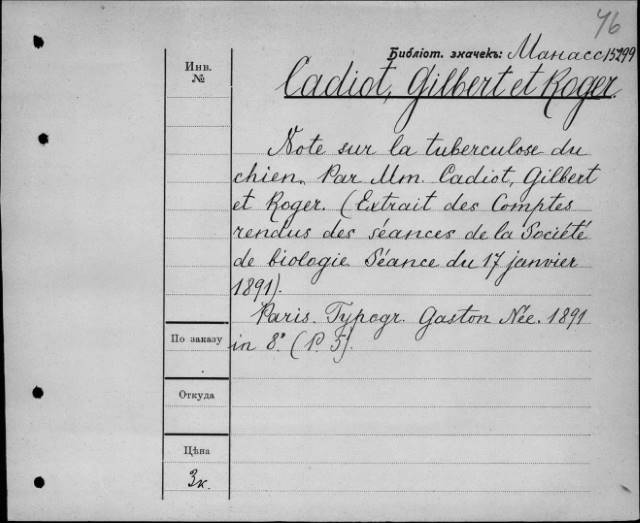 76
Библіот. значекъ: Манасс 15299
Инв.
№
Cadiot, Gilbert et Roger.
Note sur la tuberculose du
chien. Par Mm. Cadiot, Gilbert
et Roger. (Extrait des Comptes
rendus des séances de la Société
de biologie Séance du 17 janvier
1891).
Paris. Typogr. Gaston Née. 1891
in 8º. (P. 5).
По заказу
Откуда
Цѣна
3к.